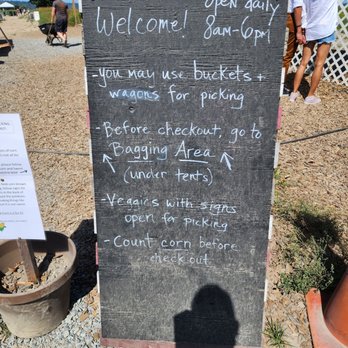 open daily
Welcome! 8am-6pm
-you may use buckets +
wagons for picking
- Before checkout, go to
Bagging Area
(under tents)
-Veggies with signs
open for picking
- Count corn before
check out